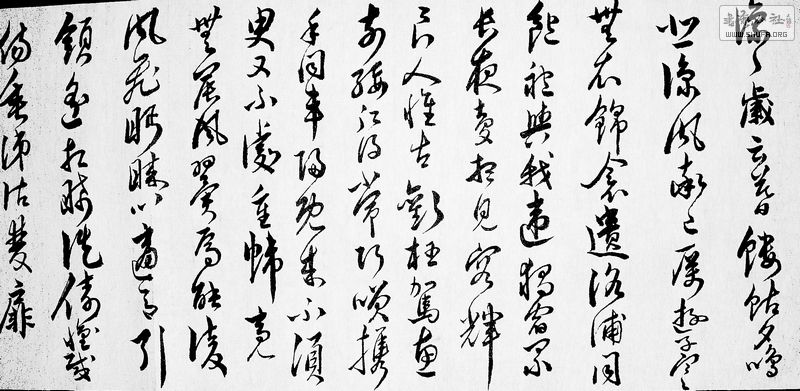 凛〻歲云暮螻蛄夕鳴
悲涼風率已厲遊子寒
無衣錦衾遺洛浦同
袍與我違獨宿累
長夜夢想見容輝
良人惟古歡枉駕惠
前綏願得常巧笑攜
手同車歸既來不須
臾又不處重幃亮
無晨風翼焉能凌
風飛眄睞以適意引
領遙相睎徙倚懷感
傷垂涕沾雙扉
WWW.SHUFA.ORG